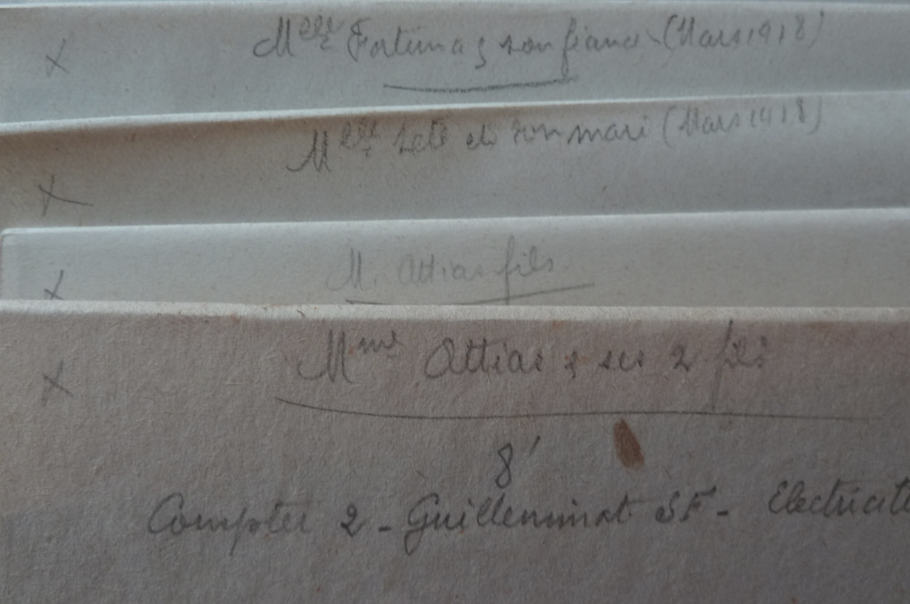 x Melle Fortuna & son fiancé (Mars 1918)
x Melle et son mari (Mars 1918)
x M. Attias fils
x Mme Attias & ses 2 fils
8'
Compter 2 - Guilleminot SF - Electricité